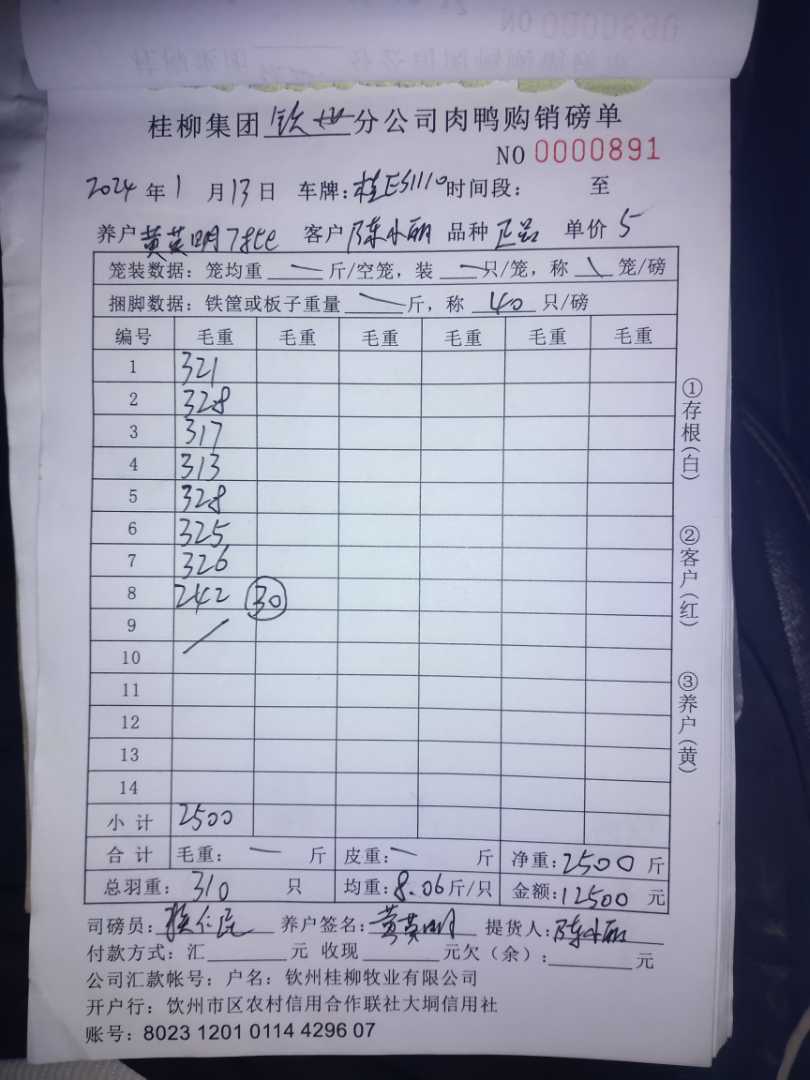 桂柳集团 钦州 分公司肉鸭购销磅单
NO 0000891
2024 年 1 月 13 日 车牌: 桂ES1110 时间段: 至
养户 黄英明 客户 陈小丽 品种 正品 单价 5
笼装数据: 笼均重 — 斤/空笼, 装 — 只/笼, 称 \ 笼/磅
捆脚数据: 铁筐或板子重量 — 斤, 称 40 只/磅
编号 毛重 毛重 毛重 毛重 毛重 毛重
1 321
2 328
3 317
4 313
5 328
6 325
7 326
8 242 30
9
10
11
12
13
14
小计 2500
合计 毛重: — 斤 皮重: — 斤 净重: 2500 斤
总羽重: 310 只 均重: 8.06 斤/只 金额: 12500 元
司磅员: 养户签名: 黄英明 提货人: 陈小丽
付款方式: 汇 元 收现 元欠(余): 元
公司汇款帐号: 户名: 钦州桂柳牧业有限公司
开户行: 钦州市区农村信用合作联社大垌信用社
账号: 8023 1201 0114 4296 07
①存根(白)
②客户(红)
③养户(黄)